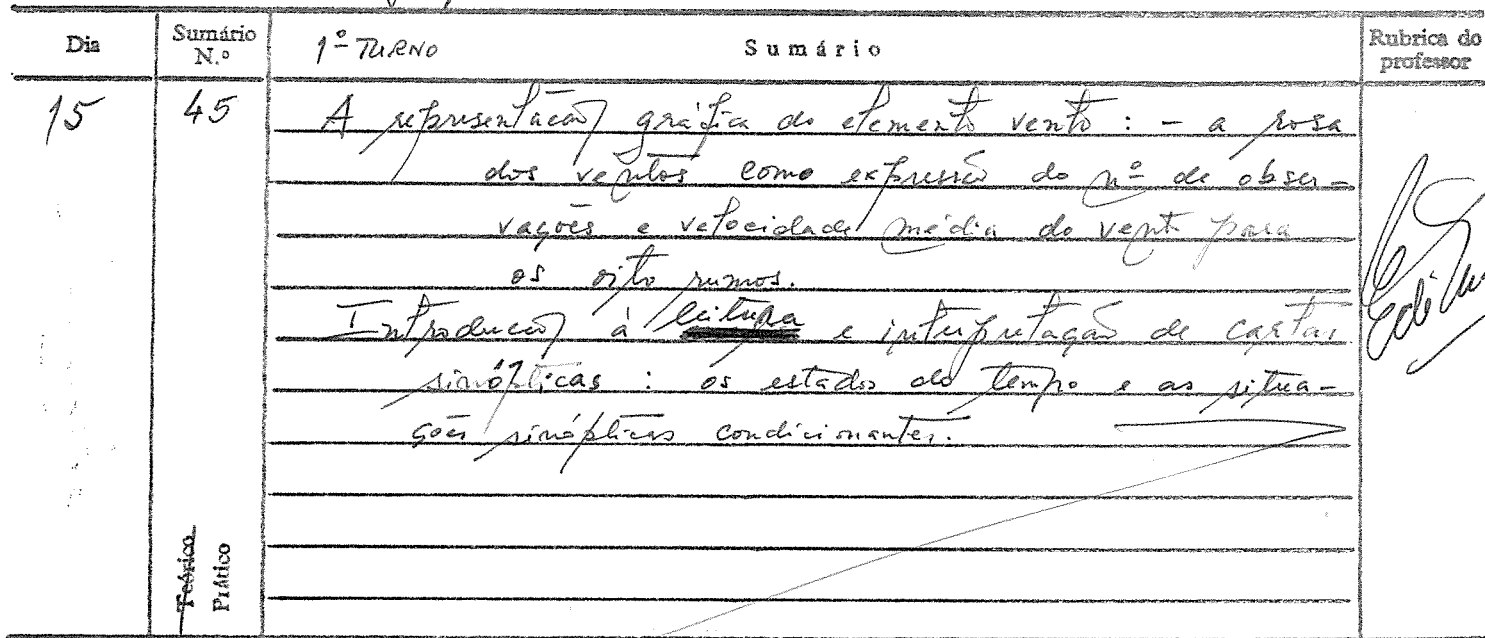 Dia
Sumário N.º
1º TURNO
Sumário
Rubrica do professor
15
45
A representação gráfica do elemento vento : - a rosa
dos ventos como expressão do nº de obser-
vações e velocidade média do vento para
os oito rumos.
Introdução à leitura e interpretação de cartas
sinópticas : os estados do tempo e as situa-
ções sinópticas condicionantes.
Teórico
Prático